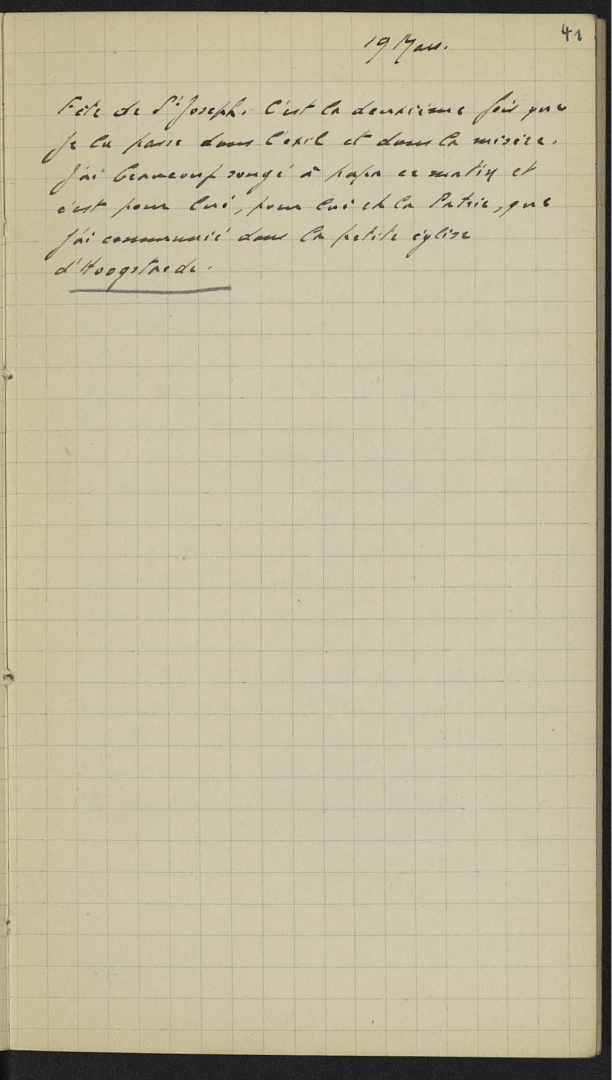 41
19 Mars.
Fête de St Joseph. C'est la deuxième fois que
je la passe dans l'exil et dans la misère.
J'ai beaucoup songé à papa ce matin et
c'est pour lui, pour lui et la Patrie, que
j'ai communié dans la petite église
d'Hoogstaede.